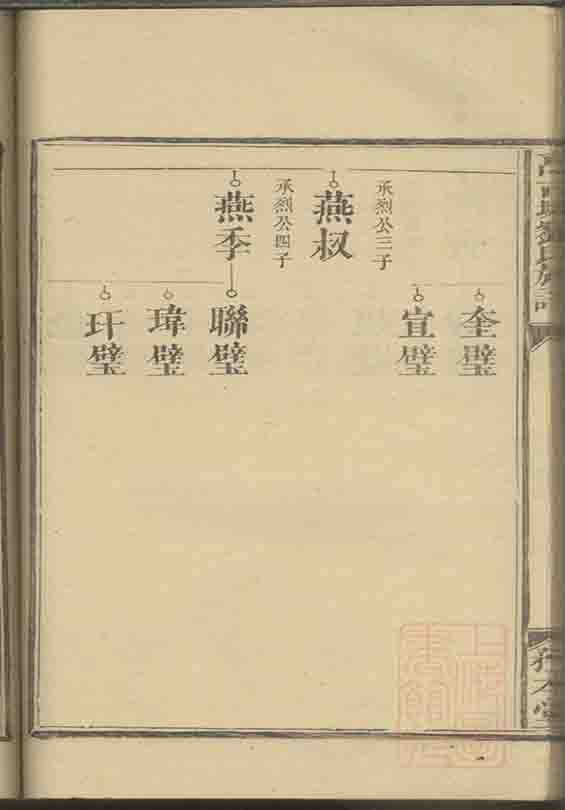 奎璧
宣璧
承烈公三子
燕叔
承烈公四子
燕季
聯璧
瑋璧
玕璧